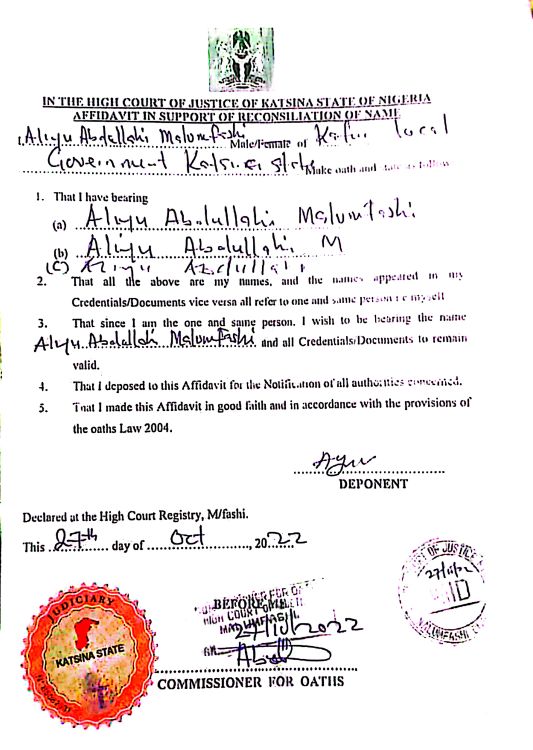 IN THE HIGH COURT OF JUSTICE OF KATSINA STATE OF NIGERIA
AFFIDAVIT IN SUPPORT OF RECONSILIATION OF NAME
I, Aliyu Abdullahi Malumfashi Male/Female of Kafur local
Government Katsina state Make oath and state as follow
1. That I have bearing
(a) Aliyu Abdullahi Malumfashi
(b) Aliyu Abdullahi M
(C) Aliyu Abdullahi
2. That all the above are my names, and the names appeared in my
Credentials/Documents vice versa all refer to one and same person i e myself
3. That since I am the one and same person. I wish to be bearing the name
Aliyu Abdullahi Malumfashi and all Credentials/Documents to remain
valid.
4. That I deposed to this Affidavit for the Notification of all authorities concerned.
5. That I made this Affidavit in good faith and in accordance with the provisions of
the oaths Law 2004.
DEPONENT
Declared at the High Court Registry, M/fashi.
This 27th day of Oct, 2022
OF JUSTICE
BEFORE ME
HIGH COURT OF
27/10/2022
JUDICIARY
KATSINA STATE
COMMISSIONER FOR OATHS